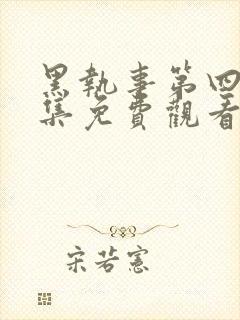 黑執事第四
集免費觀看
宋若憲